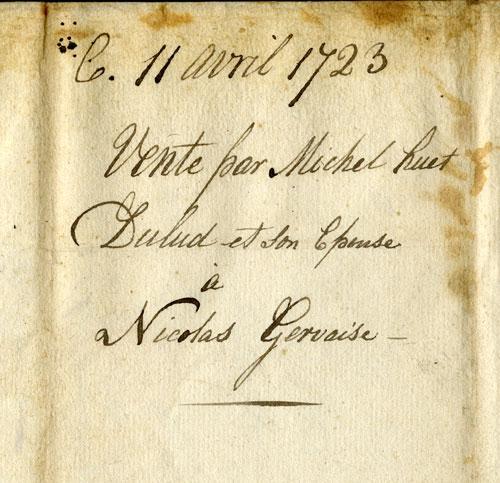 C. 11 avril 1723
Vente par Michel huet
Dulud et son Epouse
à
Nicolas Gervaise –